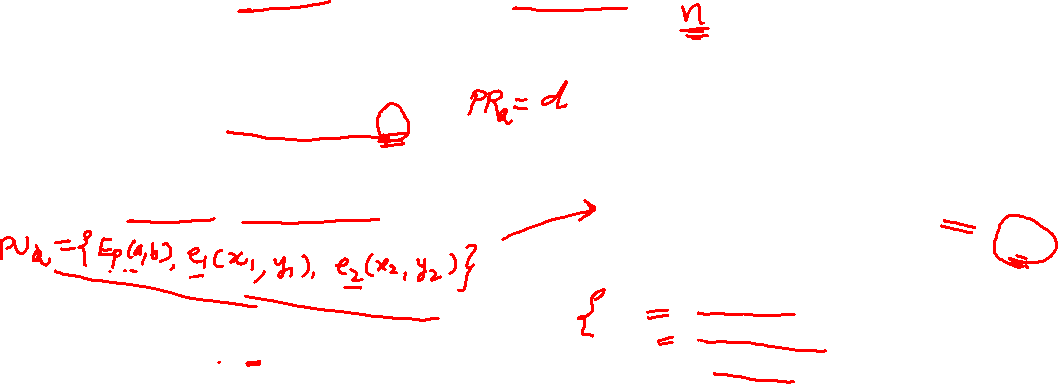 n
PR_a = d
PU_a = {E_p(a,b), e_1(x_1, y_1), e_2(x_2, y_2)}
{